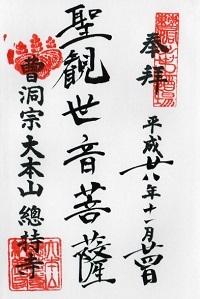 奉拝
平成廿八年十一月
聖観世音菩薩
曹洞宗大本山總持寺